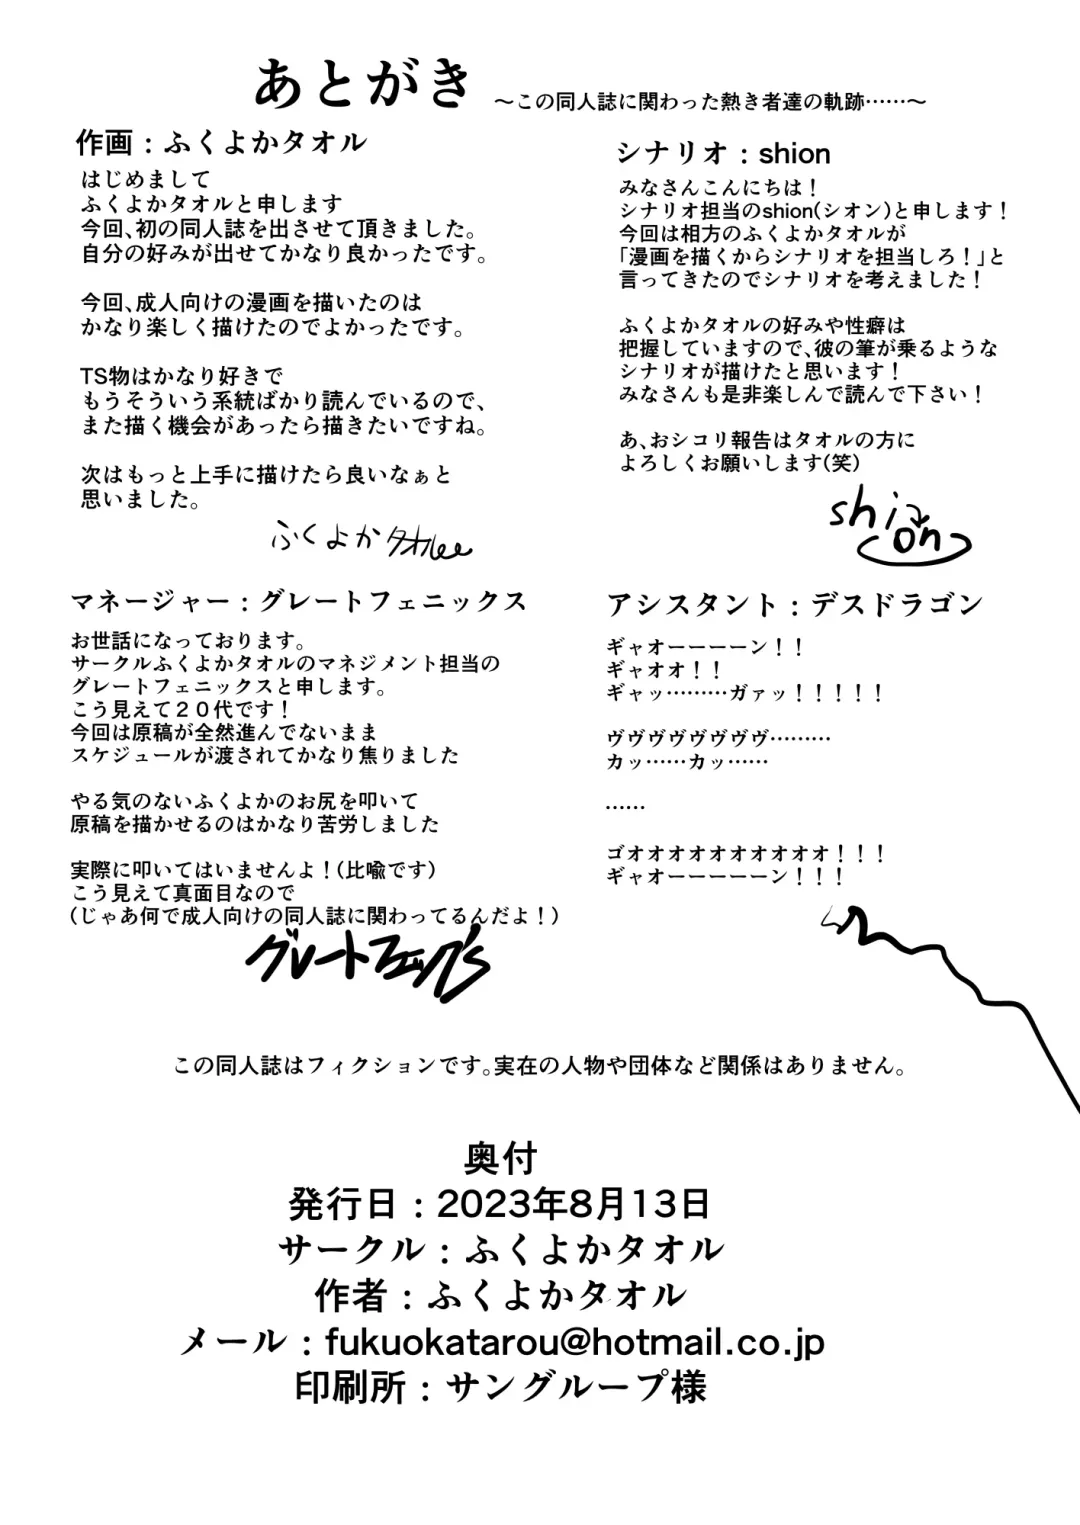 あとがき
～この同人誌に関わった熱き者達の軌跡……～
作画：ふくよかタオル
はじめまして
ふくよかタオルと申します
今回、初の同人誌を出させて頂きました。
自分の好みが出せてかなり良かったです。
今回、成人向けの漫画を描いたのは
かなり楽しく描けたのでよかったです。
TS物はかなり好きで
もうそういう系統ばかり読んでいるので、
また描く機会があったら描きたいですね。
次はもっと上手に描けたら良いなぁと
思いました。
ふくよかタオル
シナリオ：shion
みなさんこんにちは！
シナリオ担当のshion(シオン)と申します！
今回は相方のふくよかタオルが
「漫画を描くからシナリオを担当しろ！」と
言ってきたのでシナリオを考えました！
ふくよかタオルの好みや性癖は
把握していますので、彼の筆が乗るような
シナリオが描けたと思います！
みなさんも是非楽しんで読んで下さい！
あ、おシコリ報告はタオルの方に
よろしくお願いします(笑)
shion
マネージャー：グレートフェニックス
お世話になっております。
サークルふくよかタオルのマネジメント担当の
グレートフェニックスと申します。
こう見えて２０代です！
今回は原稿が全然進んでないまま
スケジュールが渡されてかなり焦りました
やる気のないふくよかのお尻を叩いて
原稿を描かせるのはかなり苦労しました
実際に叩いてはいませんよ！(比喩です)
こう見えて真面目なので
(じゃあ何で成人向けの同人誌に関わってるんだよ！)
アシスタント：デスドラゴン
ギャオーーーーン！！
ギャオオ！！
ギャッ………ガァッ！！！！！
ヴヴヴヴヴヴヴヴ………
カッ……カッ……
……
ゴオオオオオオオオオオ！！！
ギャオーーーーーン！！！
この同人誌はフィクションです。実在の人物や団体など関係はありません。
奥付
発行日：2023年8月13日
サークル：ふくよかタオル
作者：ふくよかタオル
メール：fukuokatarou@hotmail.co.jp
印刷所：サングループ様